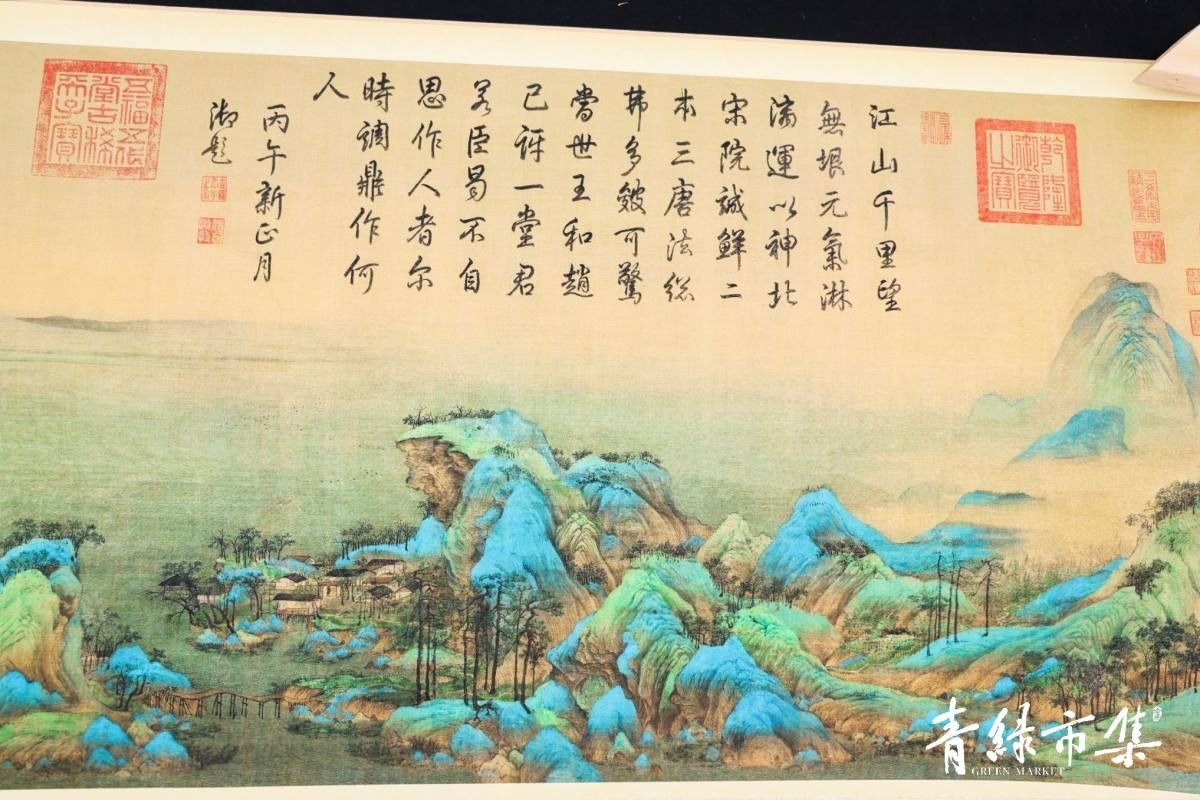 乾隆
御覽
之寶
江山千里望
無垠元氣淋
漓運以神北
宋院誠鮮二
本三唐法總
弗多皴可驚
當世王和趙
已訝一堂君
若臣曷不自
思作人者尔
時調鼎作何
人
丙午新正月
御題
五福五代
堂古稀
天子寶
青綠市集
GREEN MARKET